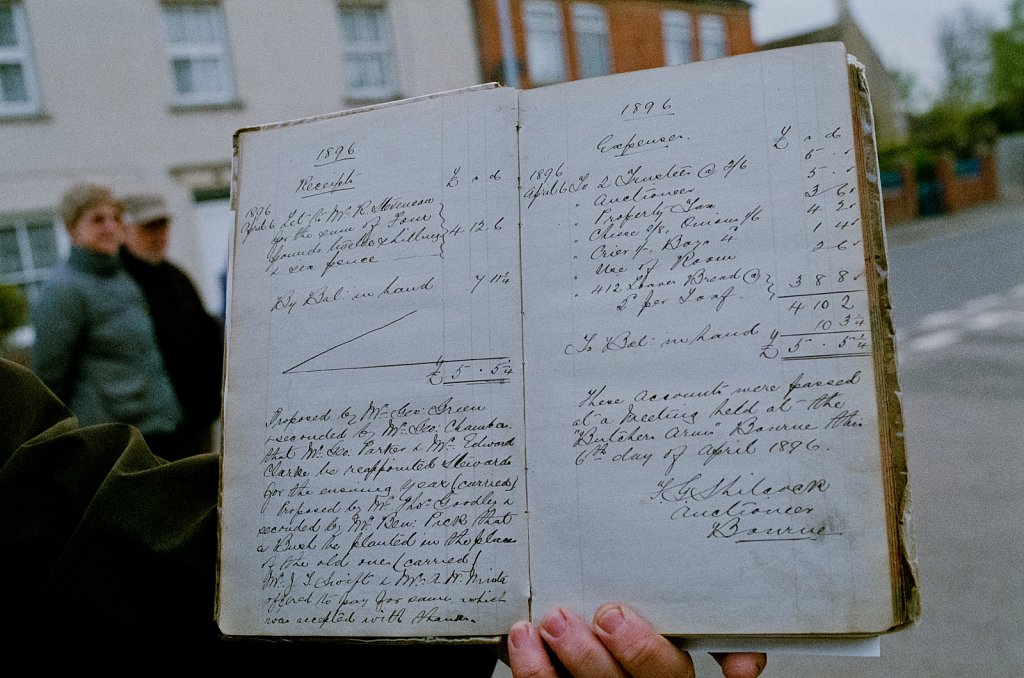 1896
Receipts
£ s d
1896
April 6 Let to Mr. R. Stevenson
for the sum of Four
pounds twelve shillings
& six pence
4 12 6
By Bal: in hand 7 11¼
£ 5 . 5¼
Proposed by Mr. Geo: Green
& seconded by Mr. Geo: Chambers
that Mr. Geo. Parker & Mr. Edward
Clarke be reappointed Stewards
for the ensuing year (carried)
Proposed by Mr. Thos. Goodley &
seconded by Mr. Ben: Pick that
a Bush be planted in the place
of the old one (carried)
Mr. J. T. Swift & Mr.
offered to pay for same, which
was accepted with thanks.
1896
Expenses.
£ s d
1896
April 6 To 2 Trustees @ 2/6 5 . .
" Auctioneer 5 . .
" Property Tax 3 6
" Cheese 2/8, Onions 1/6 4 2
" Crier 1/- Boys 4d 1 4
" Use of Room 2 6
" 412 Loaves Bread @
2d per Loaf. 3 8 8
4 10 2
To Bal: in hand 10 3¼
£ 5 . 5¼
These Accounts were passed
at a Meeting held at the
"Butchers Arms" Bourne this
6th day of April 1896.
Shilcock
Auctioneer
Bourne